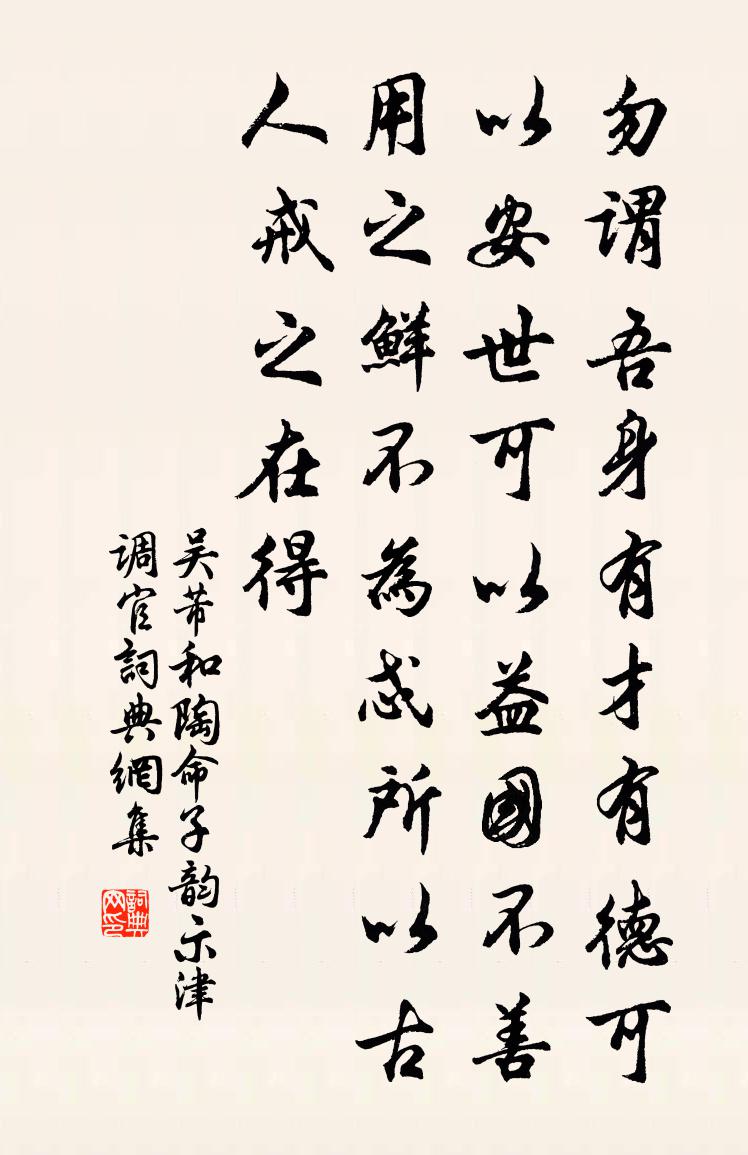 勿謂吾身有才有德可
以安世可以益國不善
用之鮮不為忒所以古
人戒之在得
吴芾和陶命子韵示津
调官詞典網集
詞典网印